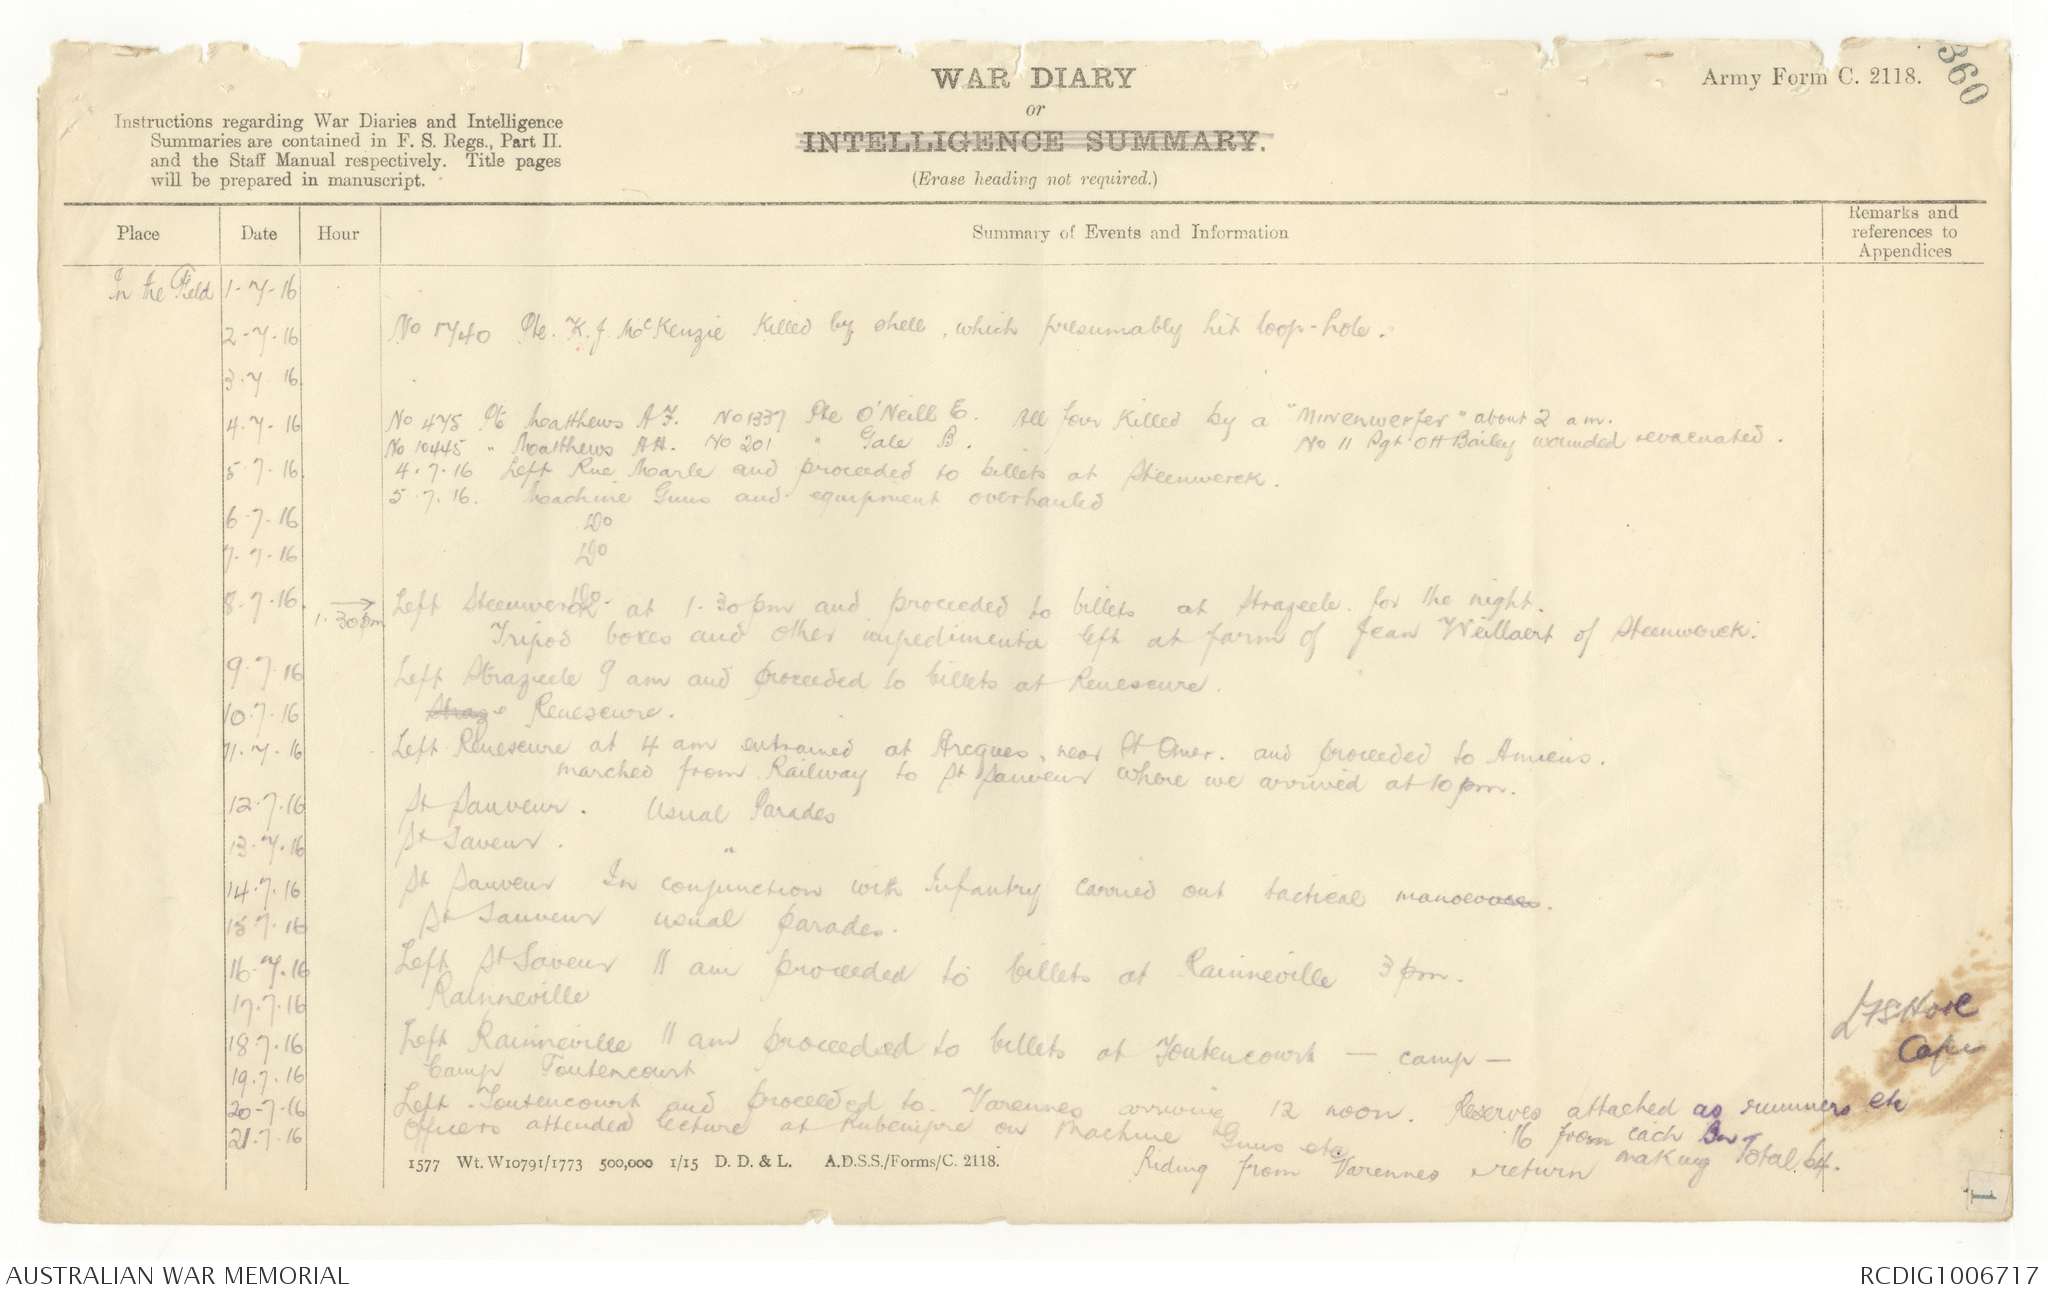 360
WAR DIARY
or
INTELLIGENCE SUMMARY.
(Erase heading not required.)
Army Form C. 2118.
Instructions regarding War Diaries and Intelligence
Summaries are contained in F. S. Regs., Part II.
and the Staff Manual respectively. Title pages
will be prepared in manuscript.
Place Date Hour Summary of Events and Information Remarks and references to Appendices
In the Field 1-7-16
2-7-16 No 1740 Pte. K. J. McKenzie Killed by shell, which presumably hit loop-hole.
3.7.16
4.7-16 No 475 Pte Matthews A F. No 1337 Pte O'Neill E. All four killed by a "Minenwerfer" about 2 am.
No 10445 " Matthews A H. No 201 " Gale B. No 11 Sgt O H Bailey wounded & evacuated.
4.7.16 Left Rue Marle and proceeded to billets at Steenwerck.
5.7.16 5.7.16. Machine Guns and equipment overhauled
6.7.16 Do
7.7.16 Do
8.7.16 Do
1.30pm Left Steenwerck at 1.30pm and proceeded to billets at Strazeele for the night.
Tripod boxes and other impedimenta left at farm of Jean Weillaert of Steenwerck.
9.7.16 Left Strazeele 9 am and proceeded to billets at Renescure.
10.7.16 Straze Renescure.
11.7.16 Left Renescure at 4 am entrained at Arcques, near St Omer. and proceeded to Amiens.
marched from Railway to St Sauveur where we arrived at 10 pm.
12.7.16 St Sauveur. Usual Parades
13.7.16 St Saveur. "
14.7.16 St Sauveur In conjunction with Infantry carried out tactical
15.7.16 St Sauveur usual parades.
16.7.16 Left St Saveur 11 am proceeded to billets at Rainneville 3 pm.
17.7.16 Rainneville
18.7.16 Left Rainneville 11 am proceeded to billets at Toutencourt — camp —
19.7.16 Camp Toutencourt
20-7-16 Left Toutencourt and proceeded to Varennes arriving 12 noon. Reserves attached as runners etc
16 from each Bn making Total 64.
21.7.16 Officers attended lecture at Rubempre on Machine Guns etc
Riding from Varennes & return
Capt
1577 Wt. W10791/1773 500,000 1/15 D. D. & L. A.D.S.S./Forms/C. 2118.
AUSTRALIAN WAR MEMORIAL
RCDIG1006717